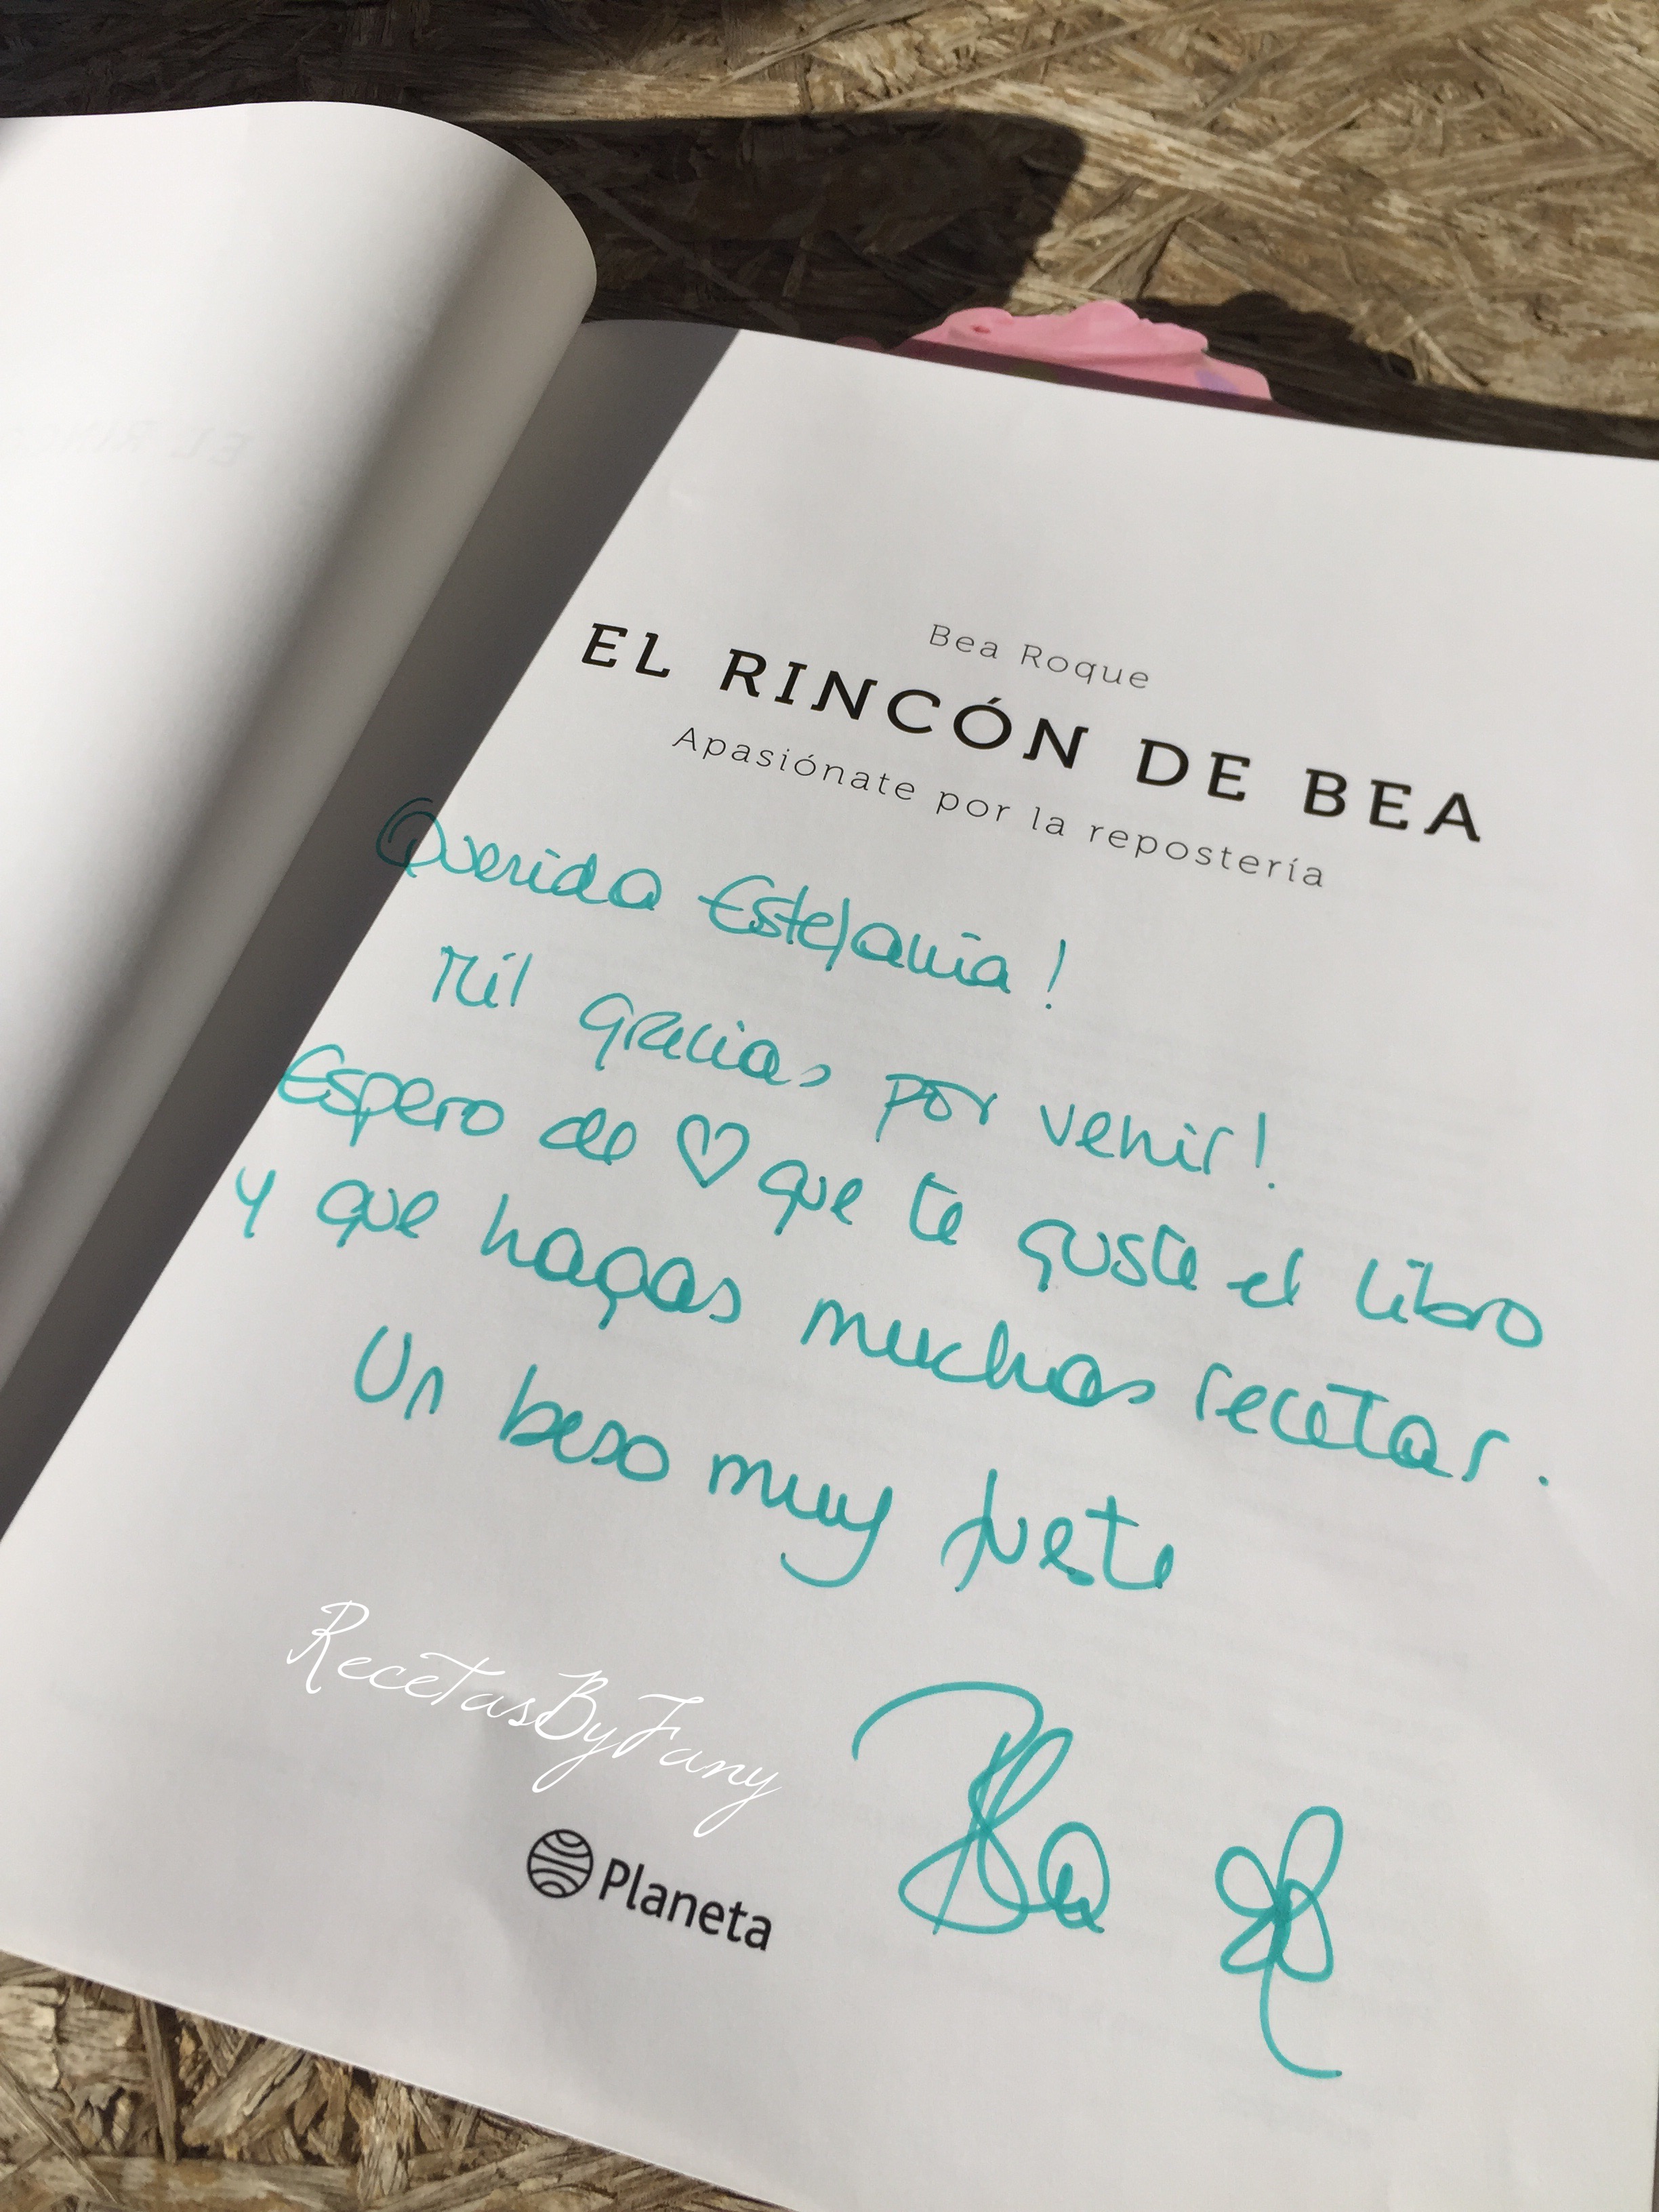 Bea Roque
EL RINCÓN DE BEA
Apasiónate por la repostería
Querida Estefanía!
Mil gracias por venir!
Espero de ♡ que te guste el libro
y que hagas muchas recetas.
Un beso muy fuete
Bea
RecetasByFany
Planeta